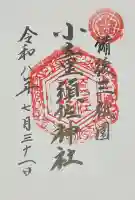 備後三祇園
小童須佐神社
令和八年七月三十一日